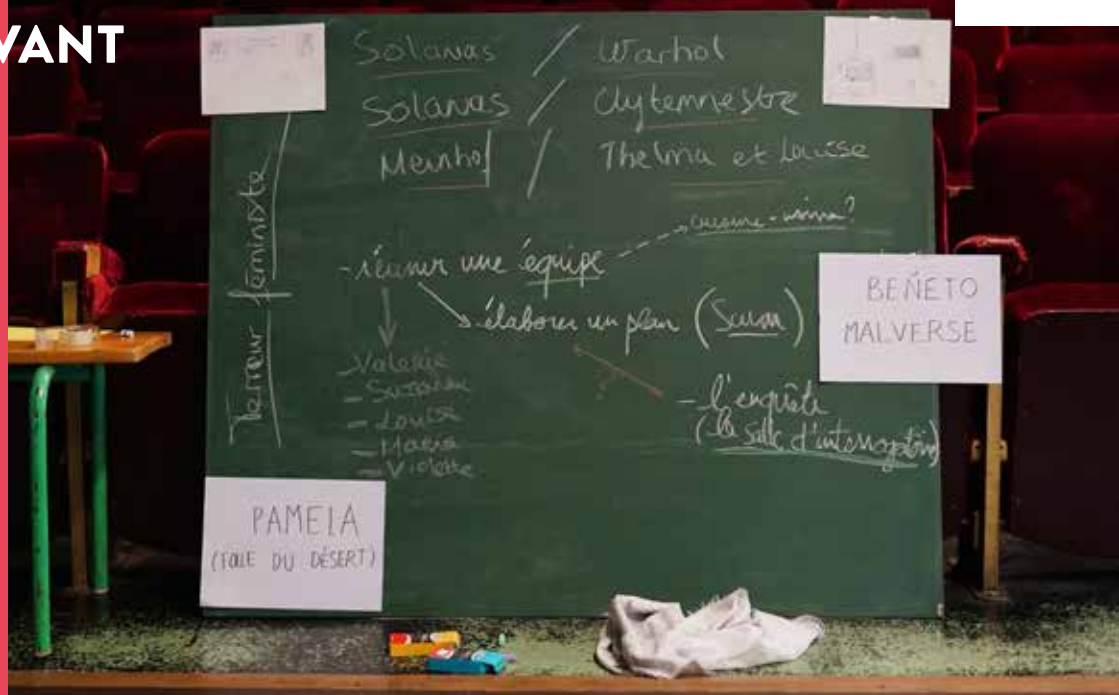 VANT
Solanas / Warhol
Solanas / Clytemnestre
Meinhof / Thelma et Louise
Terreur féministe
- réunir une équipe
élaborer un plan
Valerie
- Suzanne
- Louise
- Maria
- Violette
- l'enquête
(la salle d'interrogatoire)
BEÑETO
MALVERSE
PAMELA
(FOLLE DU DÉSERT)